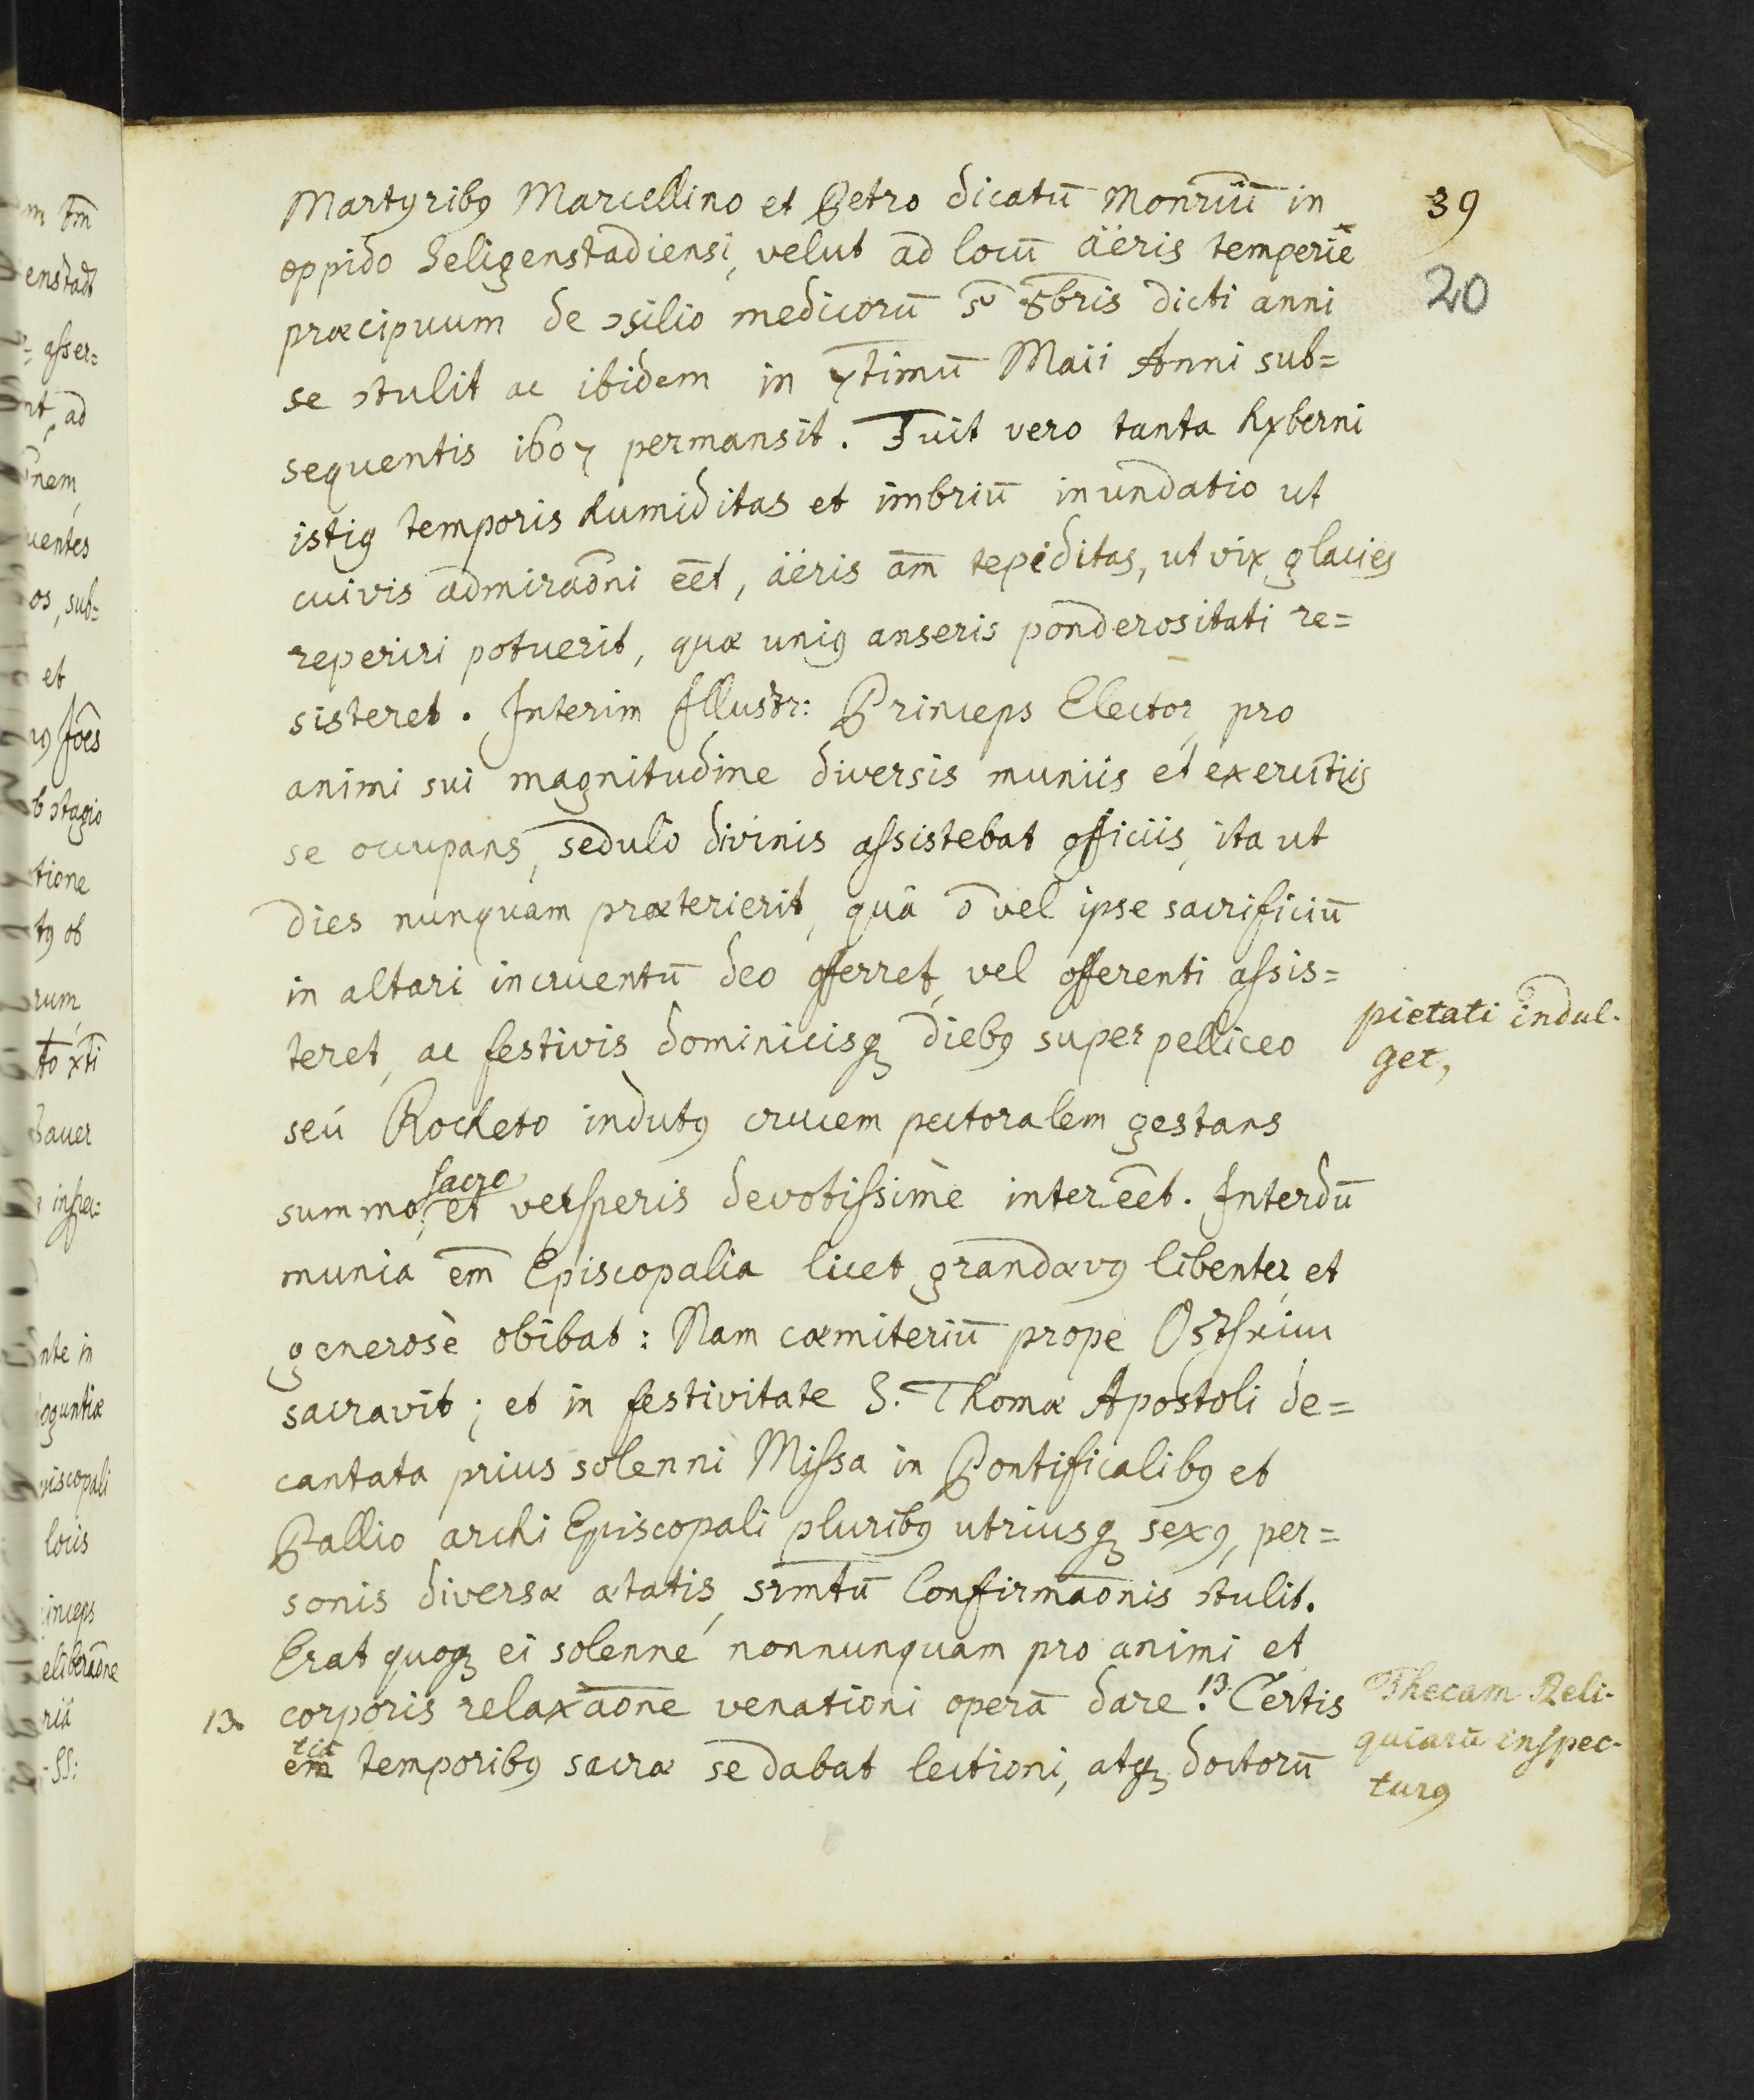 39
20
Martyribꝯ Marcellino et Petro dicatū Monrīu in
oppido Seligenstadiensi, velut ad locū äëris temperiē
præcipuum de ↄsilio medicorū 5° 8bris dicti anni
se ↄtulit ac ibidem in 7timū Maii Anni sub=
sequentis 1607 permansit. Fuit vero tanta hyberni
istiꝯ temporis humiditas et imbriū inundatio ut
cuivis admiraōni eēt, äëris aūm tepiditas, ut vix glacies
reperiri potuerit, quæ uniꝯ anseris ponderositati re=
sisteret. Interim Illustr: Princeps Elector, pro
animi sui magnitudine diversis muniis et exercitiis
se occupans, sedulo divinis aſsistebat officiis, ita ut
dies nunquam præterierit, quâ ō vel ipse sacrificiū
in altari incruentū deo offerret, vel offerenti aſsis=
teret, ac festivis dominicisqꝫ diebꝯ super pelliceo
pietati indul-
get,
seú Rocheto indutꝯ crucem pectoralem gestans
sacro
summo, et veſperis devotiſsimè intereēt. Interdū
munia em̄ Episcopalia licet grandævꝯ libenter et
generosè obibat: Nam cæmiteriū prope Ostheim
sacravit; et in festivitate S. Thomæ Apostoli de=
cantata prius solenni Miſsa in Pontificalibꝯ et
Pallio archi Episcopali pluribꝯ utriusqꝫ sexꝯ, per=
sonis diversæ ætatis, srm̄tū Confirmaōnis ↄtulit.
Erat quoqꝫ ei solenne nonnunquam pro animi et
13. corporis relaxaōne venationi operā dare. 13. Certis
Thecam Reli-
quiarū inſpec-
turꝯ
em̄ temporibꝯ sacræ se dabat lectioni, atqꝫ doctorū